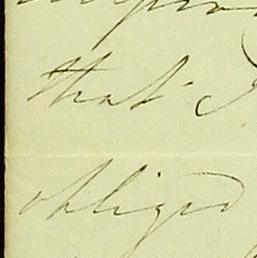 that I
obliged